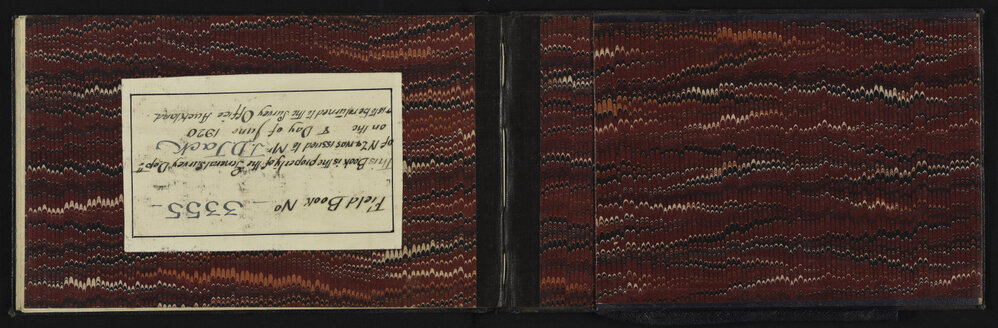 Field Book No 3355
This Book is the property of the General Survey Dept
of N.Z. & was issued to Mr. J.D. Jack
on the 8 Day of June 1920
& is to be returned to the Survey Office Auckland.